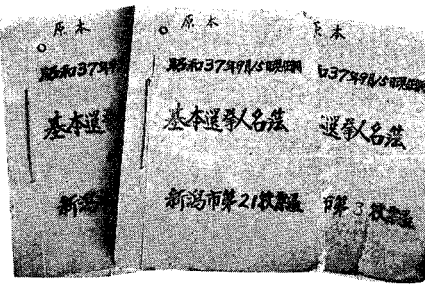 原本
昭和37年9
基本選挙
新潟
原本
昭和37年9月15日現在調
基本選挙人名簿
新潟市第21投票区
原本
和37年9月15日現在調
選挙人名簿
市第3投票区